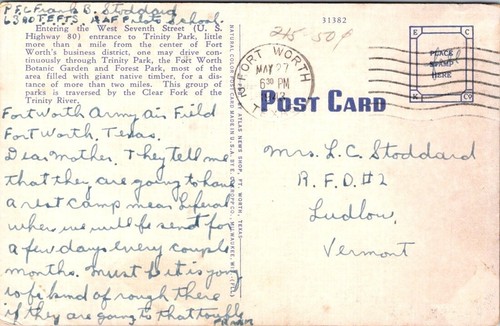 Pfc Frank B. Stoddard
63rd TEFTS. AAF Pilots School.
Entering the West Seventh Street (U. S.
Highway 80) entrance to Trinity Park, little
more than a mile from the center of Fort
Worth's business district, one may drive con-
tinuously through Trinity Park, the Fort Worth
Botanic Garden and Forest Park, most of the
area filled with giant native timber, for a dis-
tance of more than two miles. This group of
parks is traversed by the Clear Fork of the
Trinity River.
Fort Worth Army Air Field
Fort Worth, Texas.
Dear Mother. They tell me
that they are going to have
a rest camp near
where we will be send for
a few days every couple
months. Must B it is going
to B kind of rough there
if they are going to that trouble
Frank
NATURAL COLOR POST CARD MADE IN U.S.A. BY E. C. KROPP CO., MILWAUKEE, WIS.
ATLAS NEWS SHOP, FT. WORTH, TEXAS
31382
25-50¢
FORT WORTH
MAY 27
6 30 PM
POST CARD
E C
PLACE
STAMP
HERE
K Co
Mrs. L. C. Stoddard
R. F. D. #2
Ludlow,
Vermont